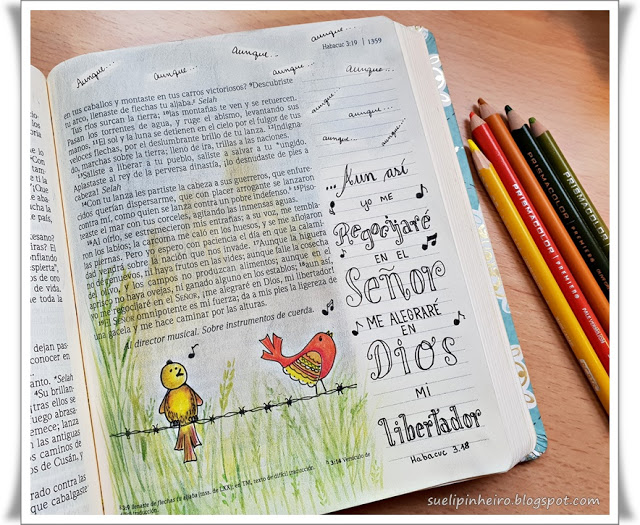 Habacuc 3:19 | 1359
Aunque...
aunque...
aunque...
aunque...
aunque...
aunque...
aunque...
aunque...
aunque...
en tus caballos y montaste en tus carros victoriosos? ⁹Descubriste
tu arco, llenaste de flechas tu aljaba.ᵍ Selah
Tus ríos surcan la tierra; ¹⁰las montañas te ven y se retuercen.
Pasan los torrentes de agua, y ruge el abismo, levantando sus
manos. ¹¹El sol y la luna se detienen en el cielo por el fulgor de tus
veloces flechas, por el deslumbrante brillo de tu lanza. ¹²Indigna-
do, marchas sobre la tierra; lleno de ira, trillas a las naciones.
¹³Saliste a liberar a tu pueblo, saliste a salvar a tu ungido.
Aplastaste al rey de la perversa dinastía, ¡lo desnudaste de pies a
cabeza! Selah
¹⁴Con tu lanza les partiste la cabeza a sus guerreros, que enfure-
cidos querían dispersarme, que con placer arrogante se lanzaron
contra mí, como quien se lanza contra un pobre indefenso. ¹⁵Piso-
teaste el mar con tus corceles, agitando las inmensas aguas.
¹⁶Al oírlo, se estremecieron mis entrañas; a su voz, me tembla-
ron los labios; la carcoma me caló en los huesos, y se me aflojaron
las piernas. Pero yo espero con paciencia el día en que la calami-
dad vendrá sobre la nación que nos invade. ¹⁷Aunque la higuera
no dé renuevos, ni haya frutos en las vides; aunque falle la cosecha
del olivo, y los campos no produzcan alimentos; aunque en el
aprisco no haya ovejas, ni ganado alguno en los establos; ¹⁸aun así,
yo me regocijaré en el SEÑOR, ¡me alegraré en Dios, mi libertador!
¹⁹El SEÑOR omnipotente es mi fuerza; da a mis pies la ligereza de
una gacela y me hace caminar por las alturas.
Al director musical. Sobre instrumentos de cuerda.
...Aun así
yo me
Regocijaré
en el
Señor
me alegraré
en
Dios
mi
libertador
Habacuc 3.18
PRISMACOLOR PREMIER
PRISMACOLOR PREMIER
suelipinheiro.blogspot.com